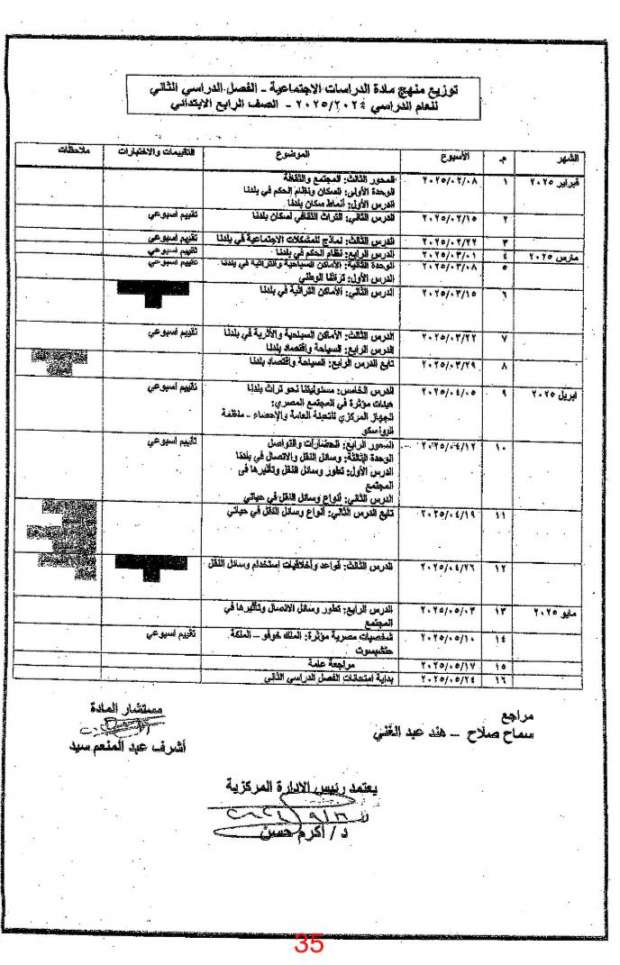 توزيع منهج مادة الدراسات الاجتماعية - الفصل الدراسي الثاني
للعام الدراسي ٢٠٢٥/٢٠٢٤ - الصف الرابع الابتدائي
الشهر م. الأسبوع الموضوع التقييمات والاختبارات ملاحظات
فبراير ٢٠٢٥ ١ ٢٠٢٥/٠٢/٠٨ المحور الثالث: المجتمع والثقافة
الوحدة الأولى: السكان ونظام الحكم في بلدنا
الدرس الأول: أنماط سكان بلدنا
٢ ٢٠٢٥/٠٢/١٥ الدرس الثاني: التراث الثقافي لسكان بلدنا تقييم اسبوعي
٣ ٢٠٢٥/٠٢/٢٢ الدرس الثالث: نماذج للمشكلات الاجتماعية في بلدنا تقييم اسبوعي
مارس ٢٠٢٥ ٤ ٢٠٢٥/٠٣/٠١ الدرس الرابع: نظام الحكم في بلدنا تقييم اسبوعي
٥ ٢٠٢٥/٠٣/٠٨ الوحدة الثانية: الأماكن السياحية والتراثية في بلدنا تقييم اسبوعي
الدرس الأول: تراثنا الوطني
٦ ٢٠٢٥/٠٣/١٥ الدرس الثاني: الأماكن التراثية في بلدنا
٧ ٢٠٢٥/٠٣/٢٢ الدرس الثالث: الأماكن السياحية والأثرية في بلدنا تقييم اسبوعي
الدرس الرابع: السياحة واقتصاد بلدنا
٨ ٢٠٢٥/٠٣/٢٩ تابع الدرس الرابع: السياحة واقتصاد بلدنا
ابريل ٢٠٢٥ ٩ ٢٠٢٥/٠٤/٠٥ الدرس الخامس: مسئوليتنا نحو تراث بلدنا تقييم اسبوعي
هيئات مؤثرة في المجتمع المصري:
الجهاز المركزي للتعبئة العامة والإحصاء - منظمة
اليونسكو
١٠ ٢٠٢٥/٠٤/١٢ المحور الرابع: الحضارات والتواصل تقييم اسبوعي
الوحدة الثالثة: وسائل النقل والاتصال في بلدنا
الدرس الأول: تطور وسائل النقل وتأثيرها في
المجتمع
الدرس الثاني: أنواع وسائل النقل في حياتي
١١ ٢٠٢٥/٠٤/١٩ تابع الدرس الثاني: أنواع وسائل النقل في حياتي
١٢ ٢٠٢٥/٠٤/٢٦ الدرس الثالث: قواعد وأخلاقيات استخدام وسائل النقل
مايو ٢٠٢٥ ١٣ ٢٠٢٥/٠٥/٠٣ الدرس الرابع: تطور وسائل الاتصال وتأثيرها في
المجتمع
١٤ ٢٠٢٥/٠٥/١٠ شخصيات مصرية مؤثرة: الملك خوفو - الملكة تقييم اسبوعي
حتشبسوت
١٥ ٢٠٢٥/٠٥/١٧ مراجعة عامة
١٦ ٢٠٢٥/٠٥/٢٤ بداية امتحانات الفصل الدراسي الثاني
مراجع
سماح صلاح - هند عبد الغني
مستشار المادة
أشرف عبد المنعم سيد
يعتمد رئيس الادارة المركزية
د / أكرم حسن
35